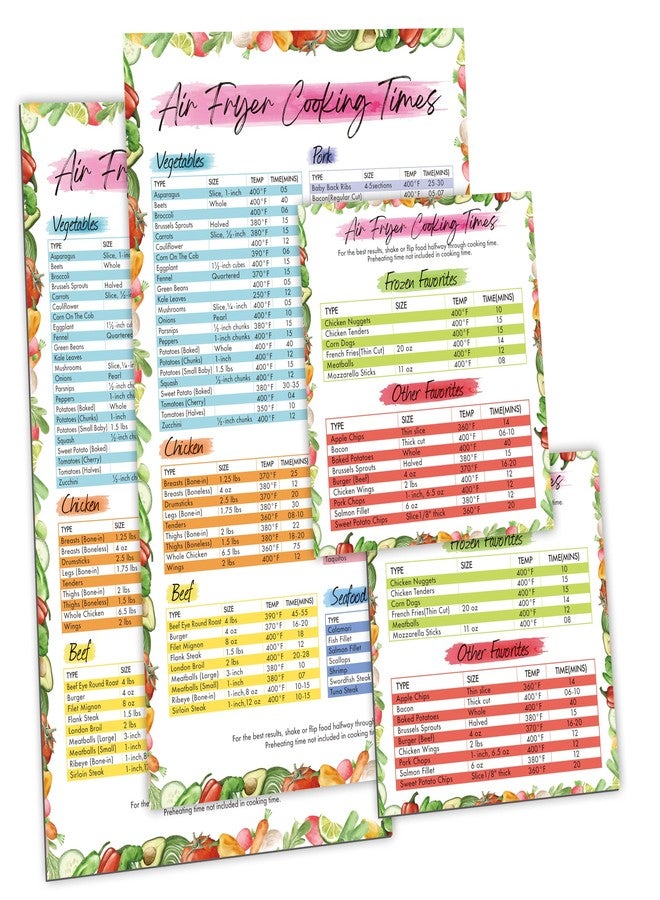 Air Fryer Cooking Times
Vegetables
TYPE SIZE TEMP TIME(MINS)
Asparagus Slice, 1-inch 400°F 05
Beets Whole 400°F 40
Broccoli 400°F 06
Brussels Sprouts Halved 380°F 15
Carrots Slice, ½-inch 380°F 15
Cauliflower 400°F 12
Corn On The Cob 390°F 06
Eggplant 1½-inch cubes 400°F 15
Fennel Quartered 370°F 15
Green Beans 400°F 05
Kale Leaves 250°F 12
Mushrooms Slice,¼-inch 400°F 05
Onions Pearl 400°F 10
Parsnips ½-inch chunks 380°F 15
Peppers 1-inch chunks 400°F 15
Potatoes (Baked) Whole 400°F 40
Potatoes (Chunks) 1-inch 400°F 12
Potatoes (Small Baby) 1.5 lbs 400°F 15
Squash ½-inch chunks 400°F 12
Sweet Potato (Baked) 380°F 30-35
Tomatoes (Cherry) 400°F 04
Tomatoes (Halves) 350°F 10
Zucchini ½-inch chunks 400°F 12
Pork
TYPE SIZE TEMP TIME(MINS)
Baby Back Ribs 4-5sections 400°F 25-30
Bacon(Regular Cut) 400°F 05-07
Chicken
TYPE SIZE TEMP TIME(MINS)
Breasts (Bone-in) 1.25 lbs 370°F 25
Breasts (Boneless) 4 oz 380°F 12
Drumsticks 2.5 lbs 370°F 20
Legs (Bone-in) 1.75 lbs 380°F 30
Tenders 360°F 08-10
Thighs (Bone-in) 2 lbs 380°F 22
Thighs (Boneless) 1.5 lbs 380°F 18-20
Whole Chicken 6.5 lbs 360°F 75
Wings 2 lbs 400°F 12
Beef
TYPE SIZE TEMP TIME(MINS)
Beef Eye Round Roast 4 lbs 390°F 45-55
Burger 4 oz 370°F 16-20
Filet Mignon 8 oz 400°F 18
Flank Steak 1.5 lbs 400°F 12
London Broil 2 lbs 400°F 20-28
Meatballs (Large) 3-inch 380°F 10
Meatballs (Small) 1-inch 380°F 07
Ribeye (Bone-in) 1-inch,8 oz 400°F 10-15
Sirloin Steak 1-inch,12 oz 400°F 10-15
Taquitos
Seafood
TYPE
Calamari
Fish Fillet
Salmon Fillet
Scallops
Shrimp
Swordfish Steak
Tuna Steak
For the best results, shake or flip food halfway through
Preheating time not included in cooking
Air Fryer
Vegetables
TYPE SIZE
Asparagus Slice, 1-in
Beets Whole
Broccoli
Brussels Sprouts Halved
Carrots Slice, ½
Cauliflower
Corn On The Cob
Eggplant 1½-inch cub
Fennel Quartered
Green Beans
Kale Leaves
Mushrooms Slice,¼
Onions Pearl
Parsnips ½-inch ch
Peppers 1-inch ch
Potatoes (Baked) Whole
Potatoes (Chunks) 1-inch
Potatoes (Small Baby) 1.5 lbs
Squash ½-inch ch
Sweet Potato (Baked)
Tomatoes (Cherry)
Tomatoes (Halves)
Zucchini ½-inch ch
Chicken
TYPE SIZE
Breasts (Bone-in) 1.25 lbs
Breasts (Boneless) 4 oz
Drumsticks 2.5 lbs
Legs (Bone-in) 1.75 lbs
Tenders
Thighs (Bone-in) 2 lbs
Thighs (Boneless) 1.5 lbs
Whole Chicken 6.5 lbs
Wings 2 lbs
Beef
TYPE SIZE
Beef Eye Round Roast 4 lbs
Burger 4 oz
Filet Mignon 8 oz
Flank Steak 1.5 lbs
London Broil 2 lbs
Meatballs (Large) 3-inch
Meatballs (Small) 1-inch
Ribeye (Bone-in) 1-inch,8
Sirloin Steak 1-inch,12
For the
Preheating time not included in cooking time.
Air Fryer Cooking Times
For the best results, shake or flip food halfway through cooking time.
Preheating time not included in cooking time.
Frozen Favorites
TYPE SIZE TEMP TIME(MINS)
Chicken Nuggets 400°F 10
Chicken Tenders 400°F 15
Corn Dogs 400°F 15
French Fries(Thin Cut) 20 oz 400°F 14
Meatballs 400°F 12
Mozzarella Sticks 11 oz 400°F 08
Other Favorites
TYPE SIZE TEMP TIME(MINS)
Apple Chips Thin slice 360°F 14
Bacon Thick cut 400°F 06-10
Baked Potatoes Whole 400°F 40
Brussels Sprouts Halved 380°F 15
Burger (Beef) 4 oz 370°F 16-20
Chicken Wings 2 lbs 400°F 12
Pork Chops 1-inch, 6.5 oz 400°F 12
Salmon Fillet 6 oz 400°F 12
Sweet Potato Chips Slice1/8" thick 360°F 20
es
time.
Frozen Favorites
TYPE SIZE TEMP TIME(MINS)
Chicken Nuggets 400°F 10
Chicken Tenders 400°F 15
Corn Dogs 400°F 15
French Fries(Thin Cut) 20 oz 400°F 14
Meatballs 400°F 12
Mozzarella Sticks 11 oz 400°F 08
Other Favorites
TYPE SIZE TEMP TIME(MINS)
Apple Chips Thin slice 360°F 14
Bacon Thick cut 400°F 06-10
Baked Potatoes Whole 400°F 40
Brussels Sprouts Halved 380°F 15
Burger (Beef) 4 oz 370°F 16-20
Chicken Wings 2 lbs 400°F 12
Pork Chops 1-inch, 6.5 oz 400°F 12
Salmon Fillet 6 oz 400°F 12
Sweet Potato Chips Slice1/8" thick 360°F 20